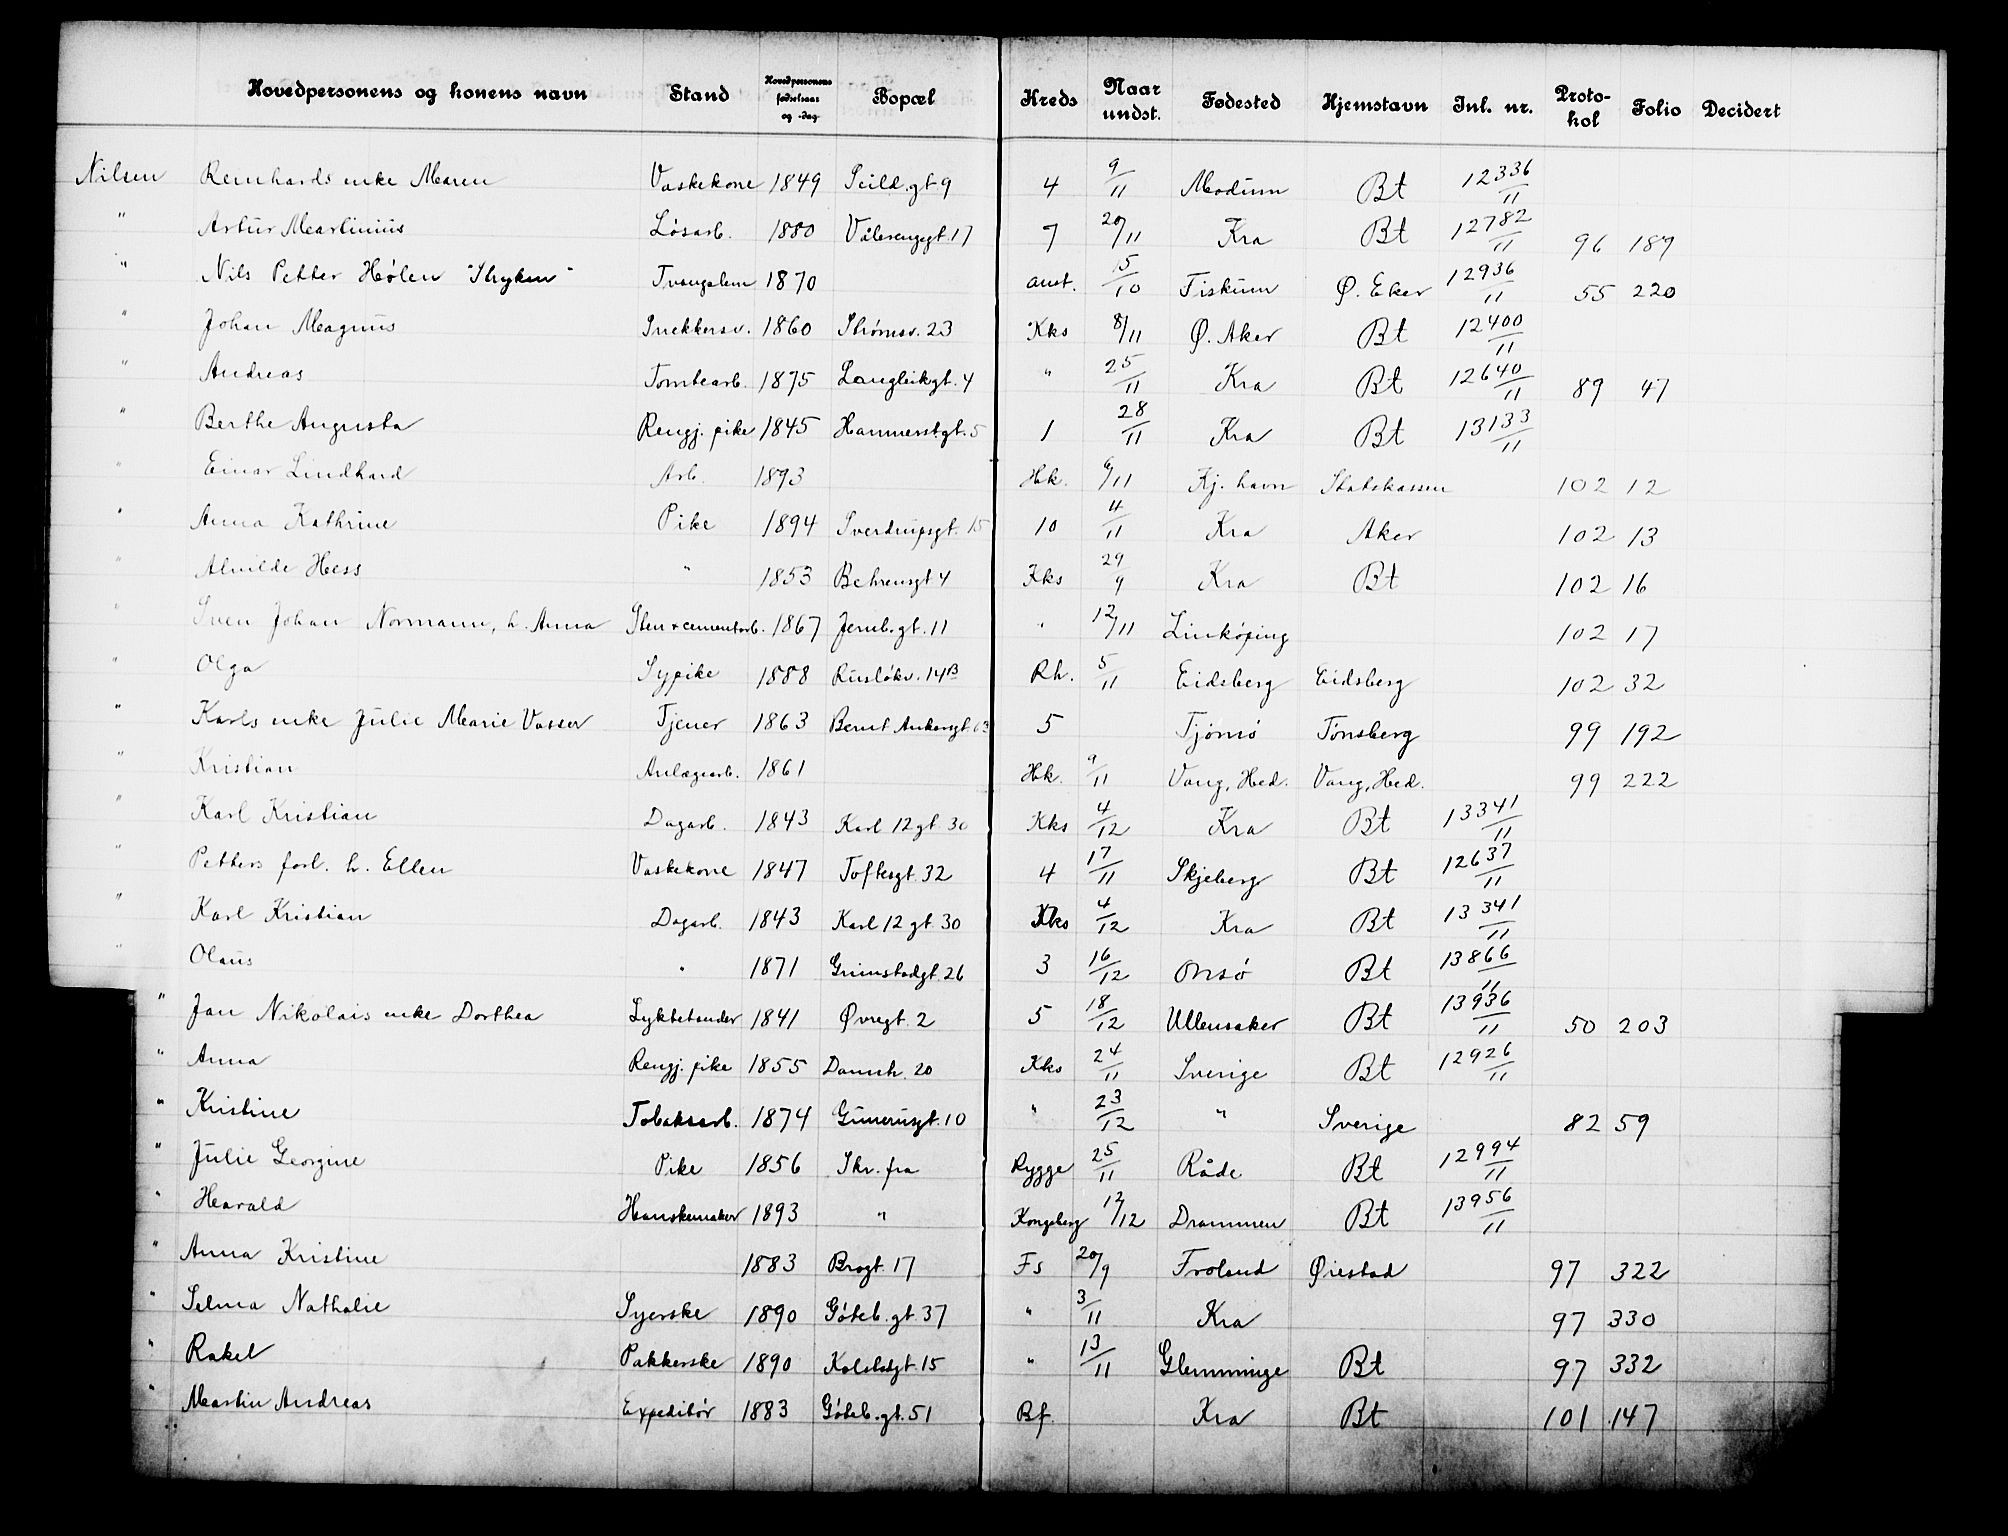 Hovedpersonens og konens navn Stand Hovedpersonens fødselsaar og -dag Bopæl Kreds Naar undst. Fødested Hjemstavn Jnl. nr. Proto-kol Folio Decidert
Nilsen Reinhards enke Maren Vaskekone 1849 Seild.gt 9 4 9/11 Modum Bt 12336/11
" Artur Martinius Løsarb. 1880 Vålerenggt. 17 7 20/11 Kra Bt 12782/11 96 189
" Nils Petter Hølen "Stryken" Tvangslem 1870 anst. 15/10 Fiskum Ø. Eker 12936/11 55 220
" Johan Magnus Snekkersv. 1860 Strømsv. 23 Kks 8/11 Ø. Aker Bt 12400/11
" Andreas Tomtearb. 1875 Langleikgt. 4 " 25/11 Kra Bt 12640/11 89 47
" Berthe Augusta Rengj. pike 1845 Hammerstgt. 5 1 28/11 Kra Bt 13133/11
" Einar Lindhard Arb. 1893 Hk. 6/11 Kj. havn Statskassen 102 12
" Anna Kathrine Pike 1894 Sverdrupsgt. 15 10 4/11 Kra Aker 102 13
" Alvilde Hess " 1853 Behrensgt 4 Kks 29/9 Kra Bt 102 16
" Sven Johan Normann, h. Anna Sten + cementarb. 1867 Jernb.gt. 11 " 12/11 Linköping 102 17
" Olga Sypike 1888 Ruseløkv. 14B Rh. 5/11 Eidsberg Eidsberg 102 32
" Karls enke Julie Marie Vasser Tjener 1863 Bernt Ankersgt. 63 5 Tjømø Tønsberg 99 192
" Kristian Anlægsarb. 1861 Hk. 9/11 Vang, Hed. Vang, Hed. 99 222
" Karl Kristian Dagarb. 1843 Karl 12 gt. 30 Kks 4/12 Kra Bt 13341/11
" Petters forl. h. Ellen Vaskekone 1847 Toftesgt. 32 4 17/11 Skjeberg Bt 12637/11
" Karl Kristian Dagarb. 1843 Karl 12 gt. 30 Kks 4/12 Kra Bt 13341/11
" Olaus " 1871 Grimstadgt. 26 3 16/12 Onsø Bt 13866/11
" Jan Nikolais enke Dorthea Lyktetender 1841 Øvregt. 2 5 18/12 Ullensaker Bt 13936/11 50 203
" Anna Rengj. pike 1855 Damstr. 20 Kks 24/11 Sverige Bt 12926/11
" Kristine Tobaksarb. 1874 Gunerusgt. 10 " 23/12 " Sverige 82 59
" Julie Georgine Pike 1856 Skr. fra Rygge 25/11 Råde Bt 12994/11
" Harald Hanskemaker 1893 " Kongsberg 12/12 Drammen Bt 13956/11
" Anna Kristine 1883 Brogt. 17 Fs 20/9 Froland Øiestad 97 322
" Selma Nathalie Syerske 1890 Gøteb.gt. 37 " 3/11 Kra 97 330
" Rakel Pakkerske 1890 Kalstadgt. 15 " 13/11 Glemminge Bt 97 332
" Martin Andreas Expeditør 1883 Gøteb.gt. 51 Bf. Kra Bt 101 147